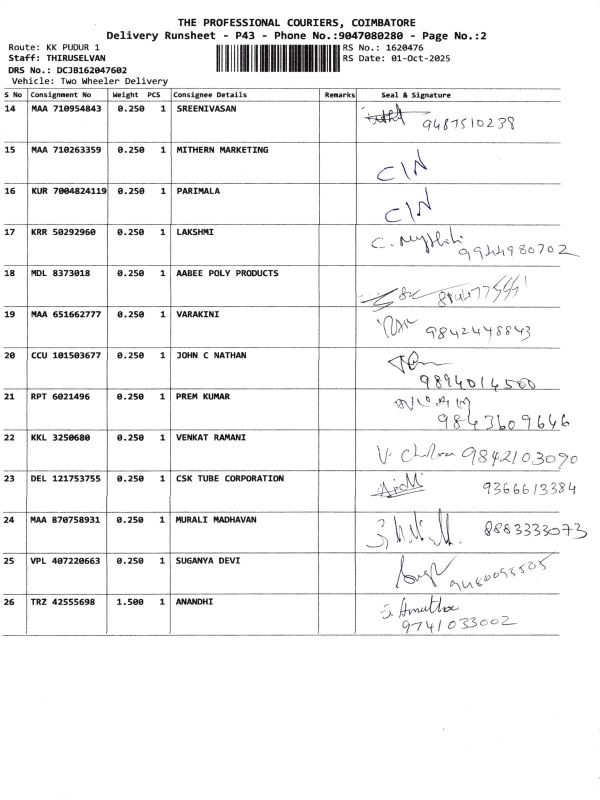 THE PROFESSIONAL COURIERS, COIMBATORE
Delivery Runsheet - P43 - Phone No.:9047080280 - Page No.:2
Route: KK PUDUR 1 RS No.: 1620476
Staff: THIRUSELVAN RS Date: 01-Oct-2025
DRS No.: DCJB162047602
Vehicle: Two Wheeler Delivery
S No Consignment No Weight PCS Consignee Details Remarks Seal & Signature
14 MAA 710954843 0.250 1 SREENIVASAN 9487510238
15 MAA 710263359 0.250 1 MITHERN MARKETING C/N
16 KUR 7004824119 0.250 1 PARIMALA C/N
17 KRR 50292960 0.250 1 LAKSHMI 9944980702
18 MDL 8373018 0.250 1 AABEE POLY PRODUCTS
19 MAA 651662777 0.250 1 VARAKINI 9842448843
20 CCU 101503677 0.250 1 JOHN C NATHAN
9894014580
21 RPT 6021496 0.250 1 PREM KUMAR
9843609646
22 KKL 3250680 0.250 1 VENKAT RAMANI 9842103090
23 DEL 121753755 0.250 1 CSK TUBE CORPORATION 9366613384
24 MAA 870758931 0.250 1 MURALI MADHAVAN 8883333073
25 VPL 407220663 0.250 1 SUGANYA DEVI
26 TRZ 42555698 1.500 1 ANANDHI Amutha
9741033002